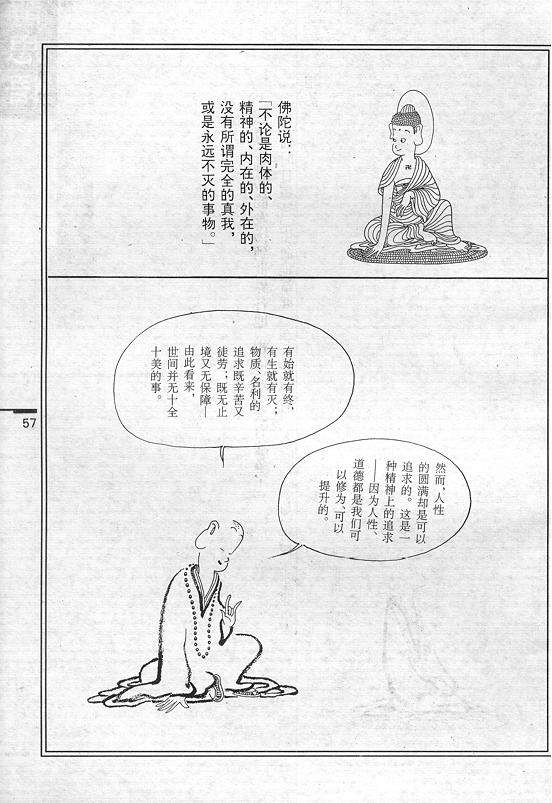 佛陀说：
「不论是肉体的、
精神的、内在的、外在的，
没有所谓完全的真我，
或是永远不灭的事物。」
有始就有终，
有生就有灭；
物质、名利的
追求既辛苦又
徒劳；既无止
境又无保障—
由此看来，
世间并无十全
十美的事。
然而，人性
的圆满却是可以
追求的。这是一
种精神上的追求
——因为人性、
道德都是我们可
以修为、可以
提升的。
57